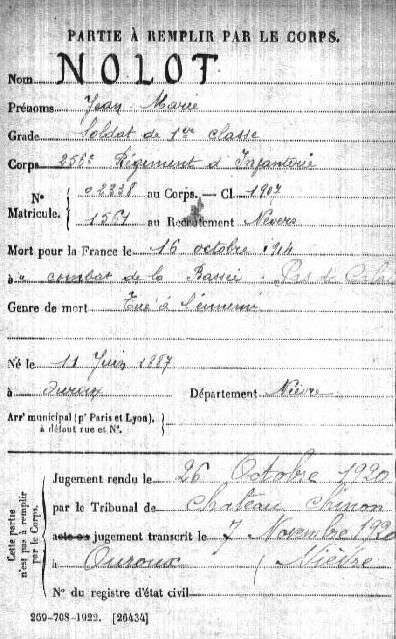 PARTIE À REMPLIR PAR LE CORPS.
Nom NOLOT
Prénoms Jean Marie
Grade Soldat de 1re classe
Corps 256e Régiment d'Infanterie
N° Matricule. { 02238 au Corps. — Cl. 1907
1567 au Recrutement Nevers
Mort pour la France le 16 octobre 1914
à combat de la Bassée Pas de Calais
Genre de mort Tué à l'ennemi
Né le 11 Juin 1887
à Ouroux Département Nièvre
Arrt municipal (pr Paris et Lyon),
à défaut rue et N°.
Cette partie n'est pas à remplir par le Corps.
Jugement rendu le 26 Octobre 1920
par le Tribunal de Château Chinon
acte ou jugement transcrit le 7 Novembre 1920
à Ouroux (Nièvre
N° du registre d'état civil
269-708-1922. [26434]